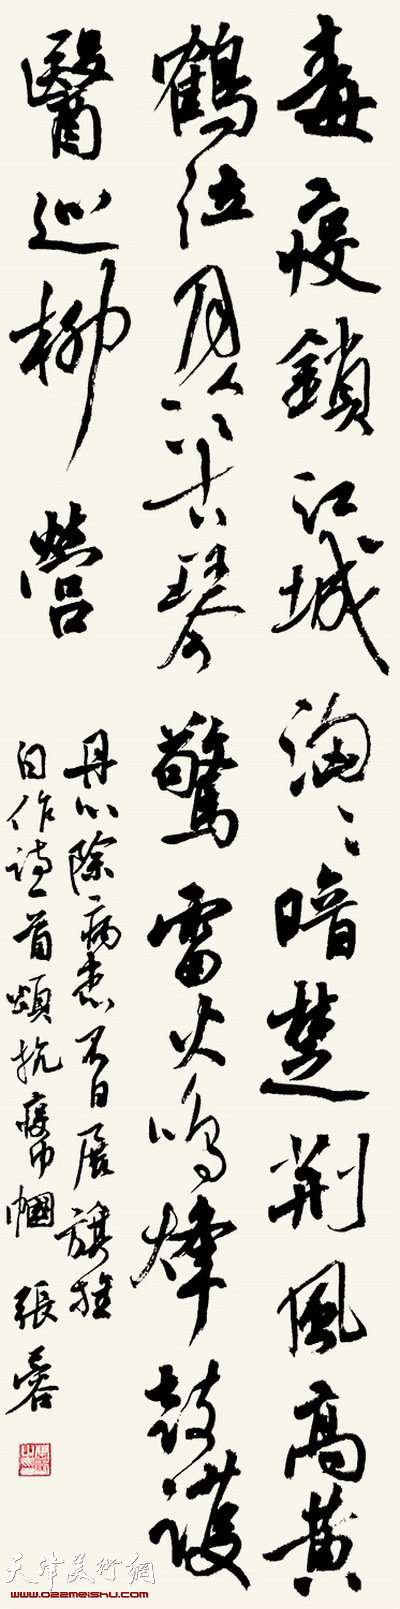 毒疫鎖江城洶〻暗楚荆風高黄
鶴泣月冷古琴驚雷火鳴烽鼓護
醫巡柳營
丹心除病患不日展旗旌
自作詩一首頌抗疫巾幗 張蓉
天津美術網
www.022meishu.com